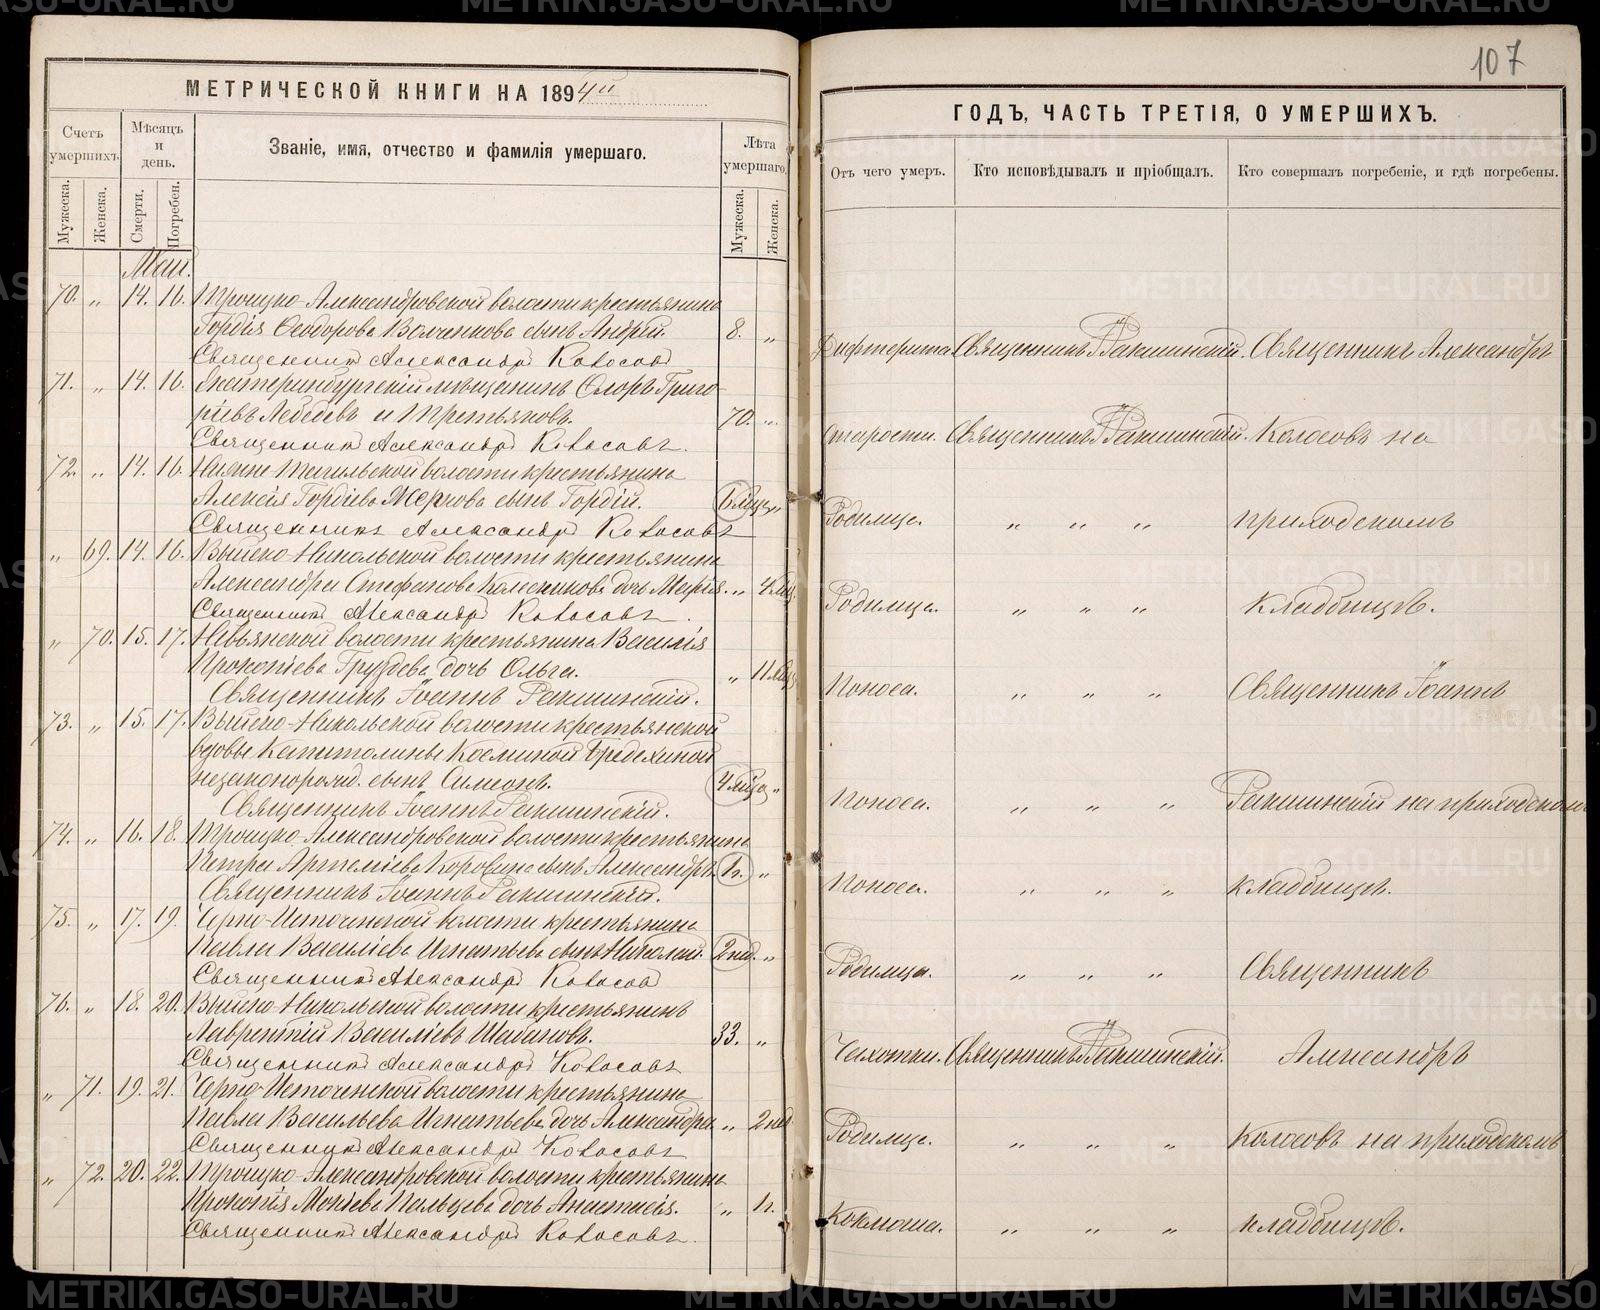 107
МЕТРИЧЕСКОЙ КНИГИ НА 1894й
Счетъ умершихъ.
Мѣсяцъ и день.
Званіе, имя, отчество и фамилія умершаго.
Лѣта умершаго.
Мужеска.
Женска.
Смерти.
Погребен.
Мужеска.
Женска.
Маи.
70. „ 14. 16. Троицко-Александровской волости крестьянина
Гордія Ѳеодорова сынъ Андрей 8. „
Священникъ Александръ Колосовъ
71. „ 14. 16. Екатеринбургскій мѣщанинъ Флоръ Григо-
рьевъ Лебедевъ и Третьяковъ. 70. „
Священникъ Александръ Колосовъ.
72. „ 14. 16. Нижне-Тагильской волости крестьянина
Алексія Гордіева сынъ Гордій. 6 мцъ „
Священникъ Александръ Колосовъ
„ 69. 14. 16. Выйско-Никольской волости крестьянина
Александра Стефанова дочь Марія. „ 4 мц.
Священникъ Александръ Колосовъ.
„ 70. 15. 17. Невьянской волости крестьянина Василія
Прокопіева Груздева дочь Ольга. „ 11 мцъ
Священникъ Іоаннъ Ракшинскій.
73. „ 15. 17. Выйско-Никольской волости крестьянской
вдовы Капитолины Косминой
незаконорожд. сынъ Симеонъ. 4 мца „
Священникъ Іоаннъ Ракшинскій.
74. „ 16. 18. Троицко-Александровской волости крестьянина
Петра Артеміева Коровина сынъ Александръ. 1 г. „
Священникъ Іоаннъ Ракшинскій.
75. „ 17. 19. Черно-Источинской волости крестьянина
Павла Василіева Игнатьева сынъ Николай. 2 нед. „
Священникъ Александръ Колосовъ
76. „ 18. 20. Выйско-Никольской волости крестьянинъ
Лаврентій Василіевъ Шабановъ. 33. „
Священникъ Александръ Колосовъ
„ 71. 19. 21. Черно-Источенской волости крестьянина
Павла Васильева Игнатьева дочь Александра „ 2 нед
Священникъ Александръ Колосовъ
„ 72. 20. 22. Троицко-Александровской волости крестьянина
Прокопія Мокіева Пальцева дочь Анастасія. „ 1 г.
Священникъ Александръ Колосовъ.
ГОДЪ, ЧАСТЬ ТРЕТІЯ, О УМЕРШИХЪ.
Отъ чего умеръ.
Кто исповѣдывалъ и пріобщалъ.
Кто совершалъ погребеніе, и гдѣ погребены.
Дифтерита. Священникъ І. Ракшинскій. Священникъ Александръ
Старости. Священникъ І. Ракшинскій. Колосовъ на
Родимца. „ „ „ приходскомъ
Родимца. „ „ „ кладбищѣ.
Поноса. „ „ „ Священникъ Іоаннъ
Поноса. „ „ „ Ракшинскій на приходскомъ
Поноса. „ „ „ кладбищѣ.
Родимца. „ „ „ Священникъ
Чахотки. Священникъ І. Ракшинскій. Александръ
Родимца. „ „ „ Колосовъ на приходскомъ
Коклюша. „ „ „ кладбищѣ.
METRIKI.GASO-URAL.RU